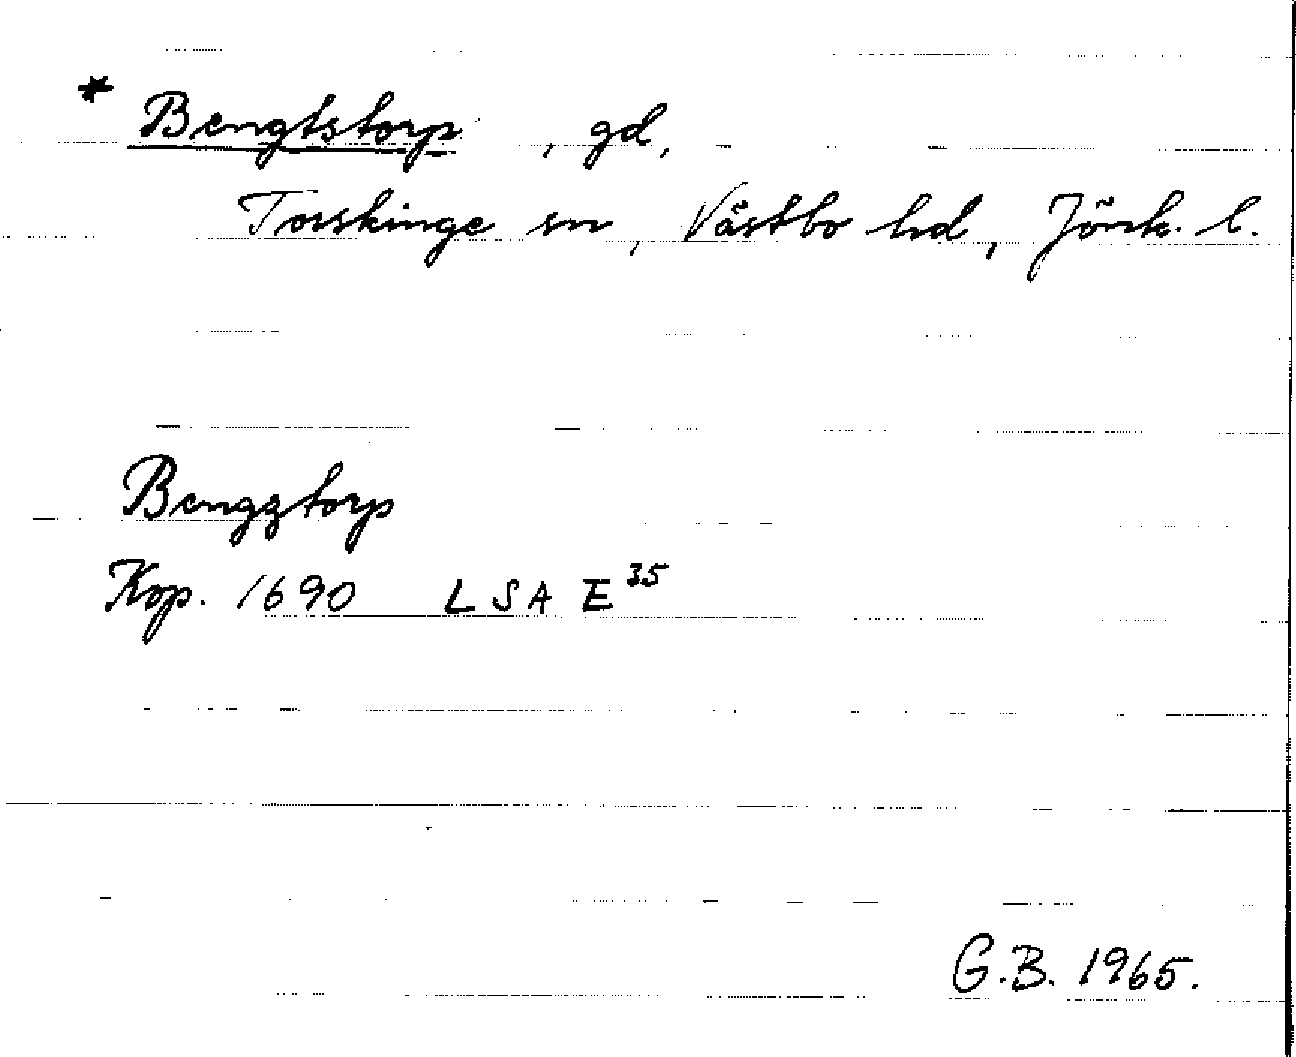 * Bengtstorp, gd,
Torskinge sn, Västbo hd, Jönk. l.
Benggtorp
Kop. 1690 LSA E³⁵
G.B. 1965.